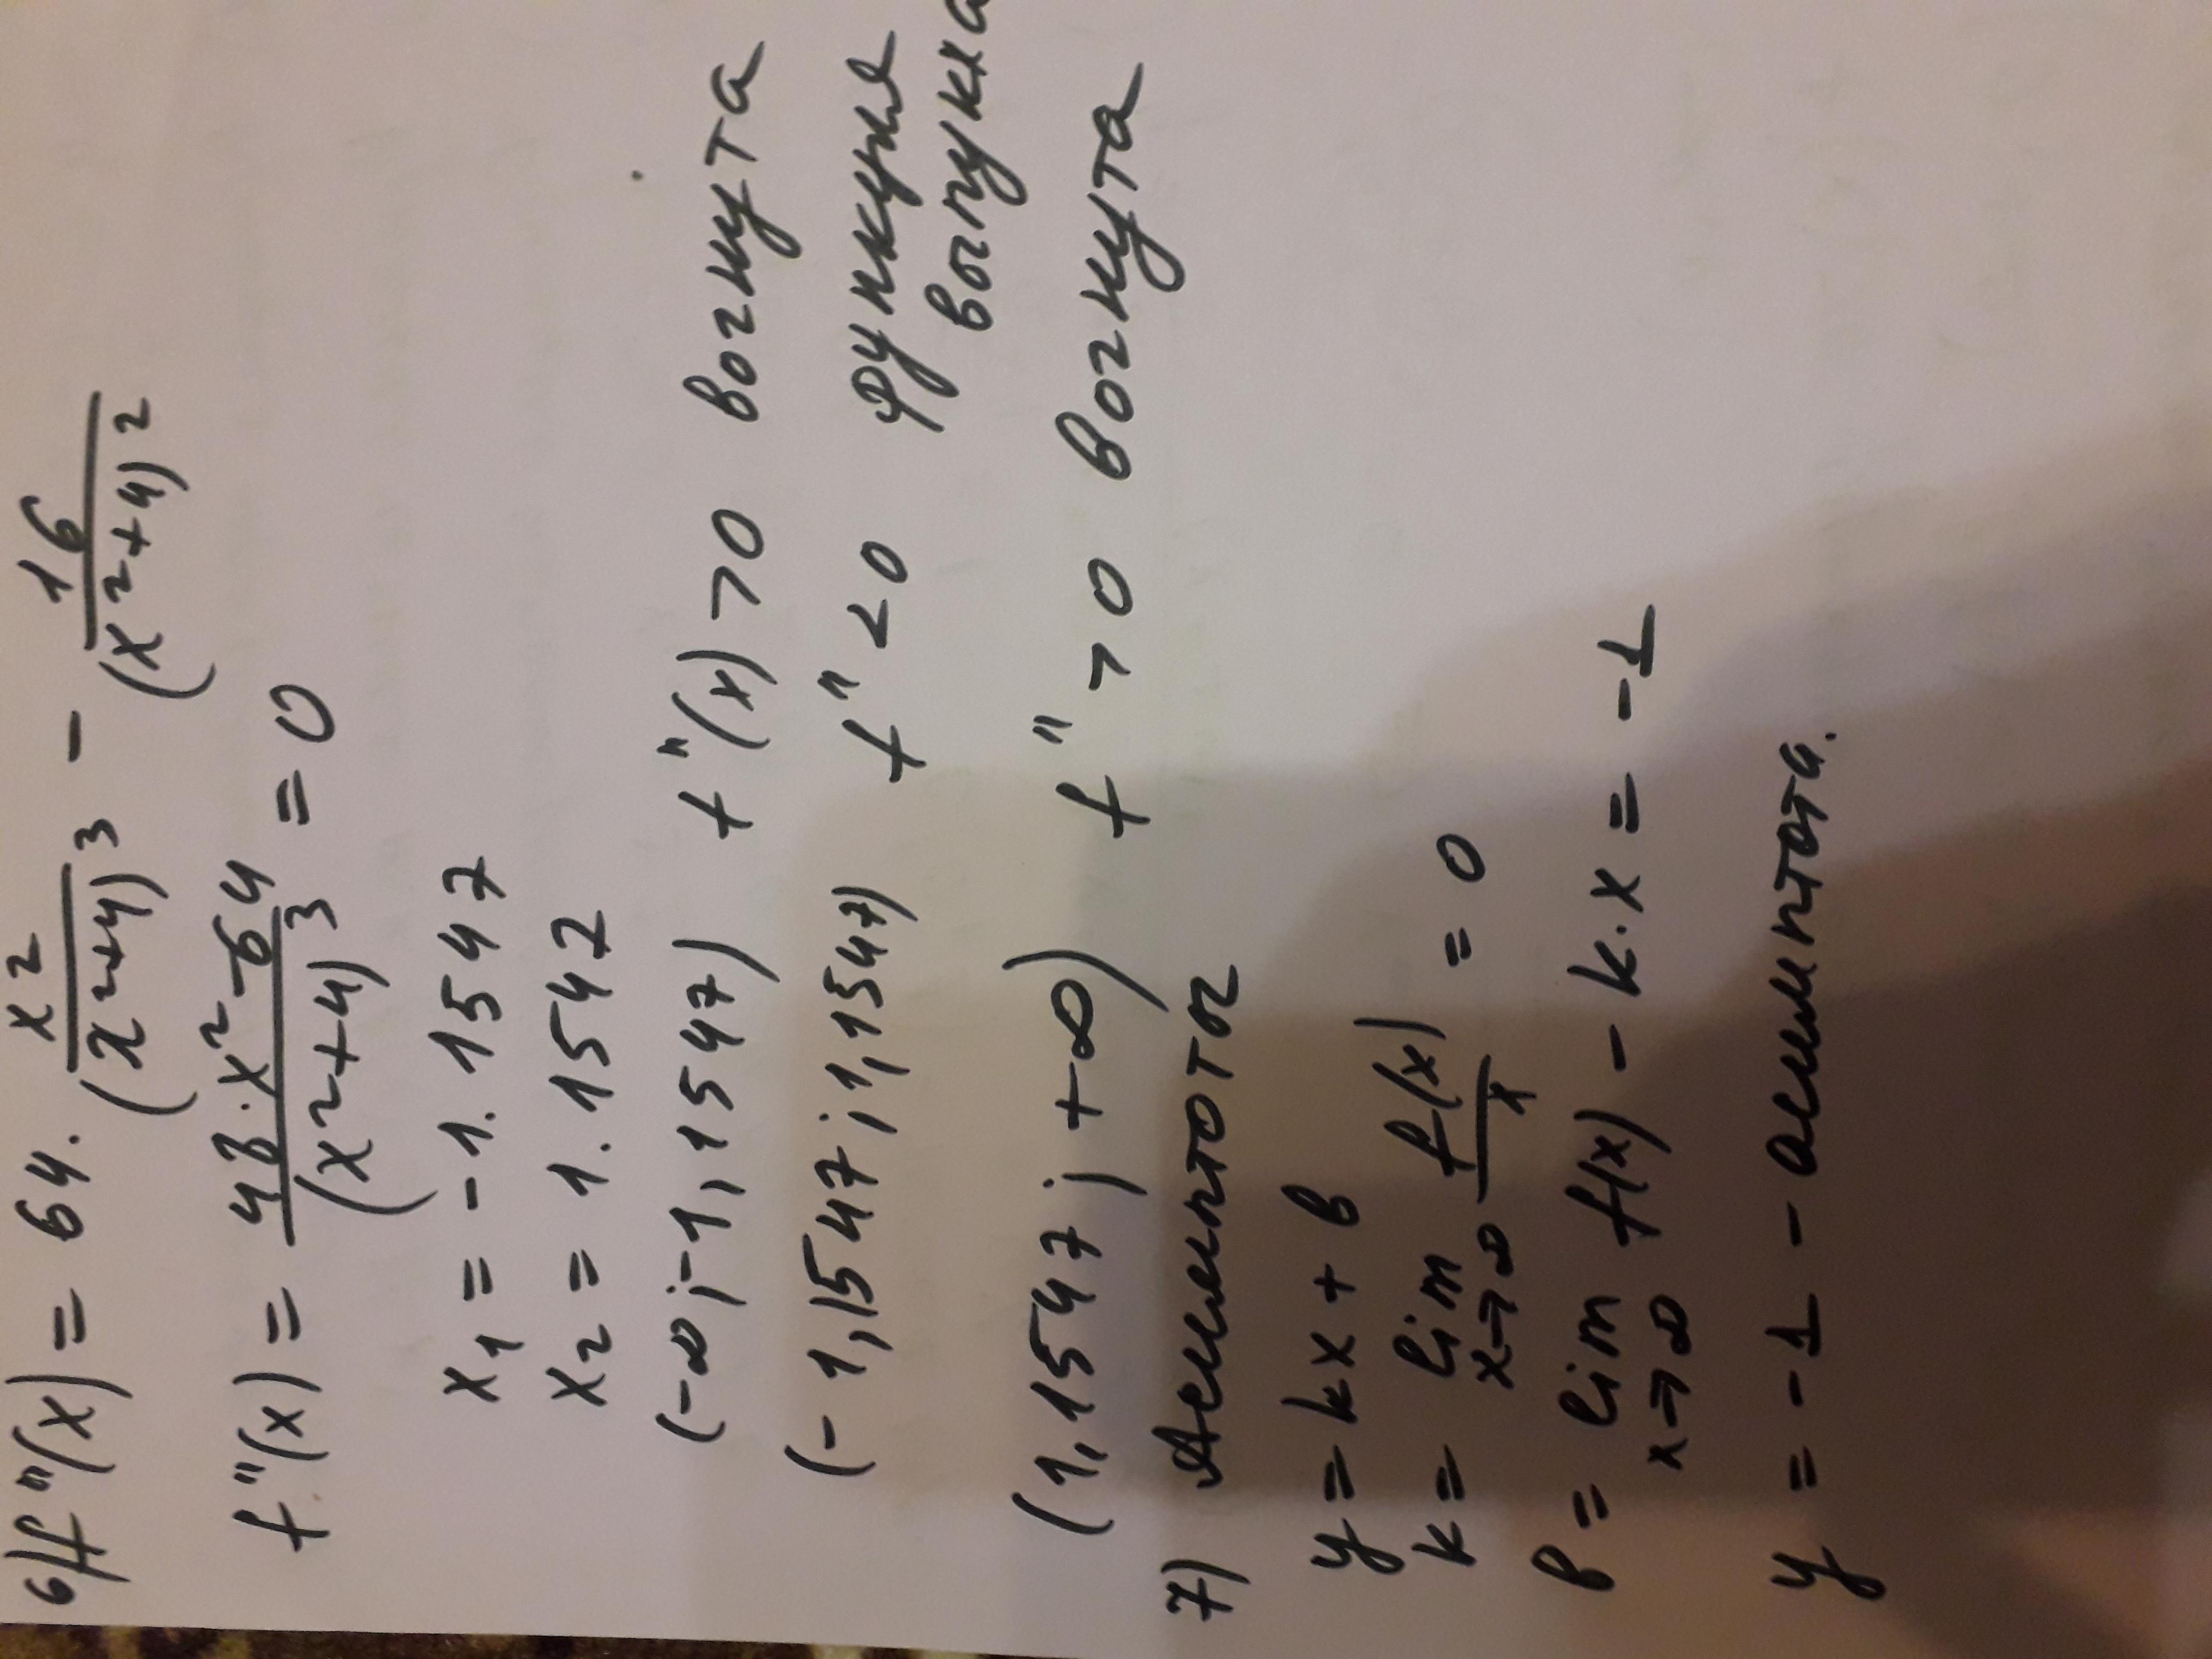 6) f"(x) = 64 · x²/(x²+4)³ − 16/(x²+4)²
f"(x) = 48·x²−64/(x²+4)³ = 0
x₁ = −1.1547
x₂ = 1.1547
(−∞;−1,1547) f"(x) >0 вогнута
(−1,1547;1,1547) f" <0 функция
выпукла
(1,1547; +∞) f" >0 вогнута
7) Асимптоты
y = kx + b
k = lim x→∞ f(x)/x = 0
b = lim x→∞ f(x) − k·x = −1
y = −1 − асимптота.